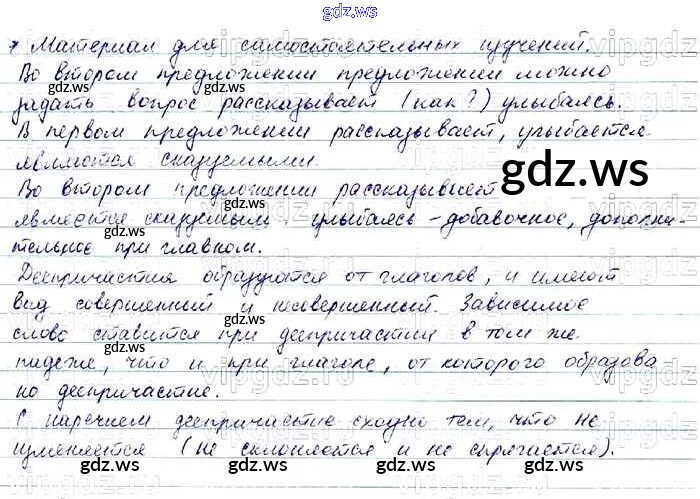 gdz.ws
* Материал для самостоятельных изучений.
Во втором предложении предложении можно
задать вопрос рассказывает (как?) улыбаясь.
В первом предложении рассказывает, улыбается
являются сказуемыми.
Во втором предложении рассказывает
является сказуемым, улыбаясь - добавочное, дополни-
тельное при главном.
Деепричастия образуются от глаголов, и имеют
вид совершенный и несовершенный. Зависимое
слово ставится при деепричастии в том же
падеже, что и при глаголе, от которого образова
но деепричастие.
С наречием деепричастие сходно тем, что не
изменяется (не склоняется и не спрягается).
gdz.ws
gdz.ws
gdz.ws
gdz.ws
gdz.ws
gdz.ws
gdz.ws
gdz.ws